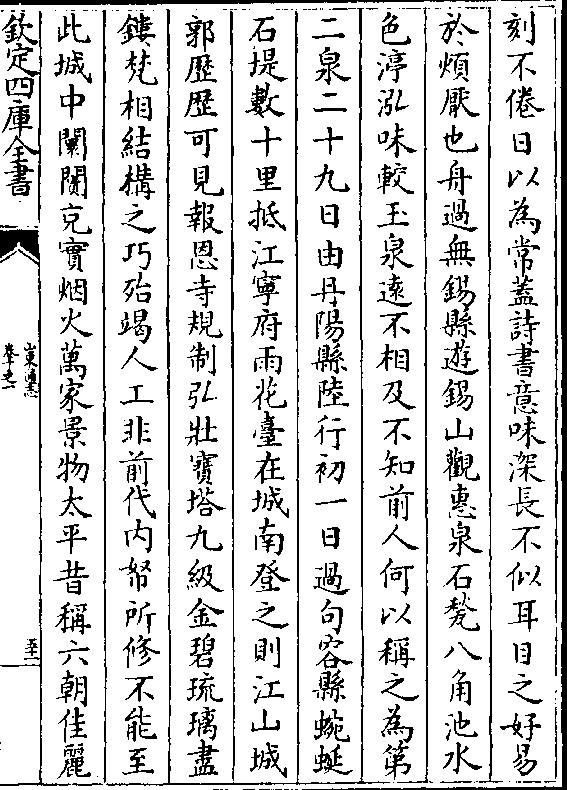 刻不倦日以為常蓋詩書意味深長不似耳目之好易
於煩厭也舟過無錫縣遊錫山觀惠泉石甃八角池水
色渟泓味較玉泉遠不相及不知前人何以稱之為第
二泉二十九日由丹陽縣陸行初一日過句容縣蜿蜒
石堤數十里抵江寧府雨花臺在城南登之則江山城
郭歷歷可見報恩寺規制弘壯寶塔九級金碧琉璃盡
鏤梵相結構之巧殆竭人工非前代内帑所修不能至
此城中闤闠充實烟火萬家景物太平昔稱六朝佳麗
欽定四庫全書